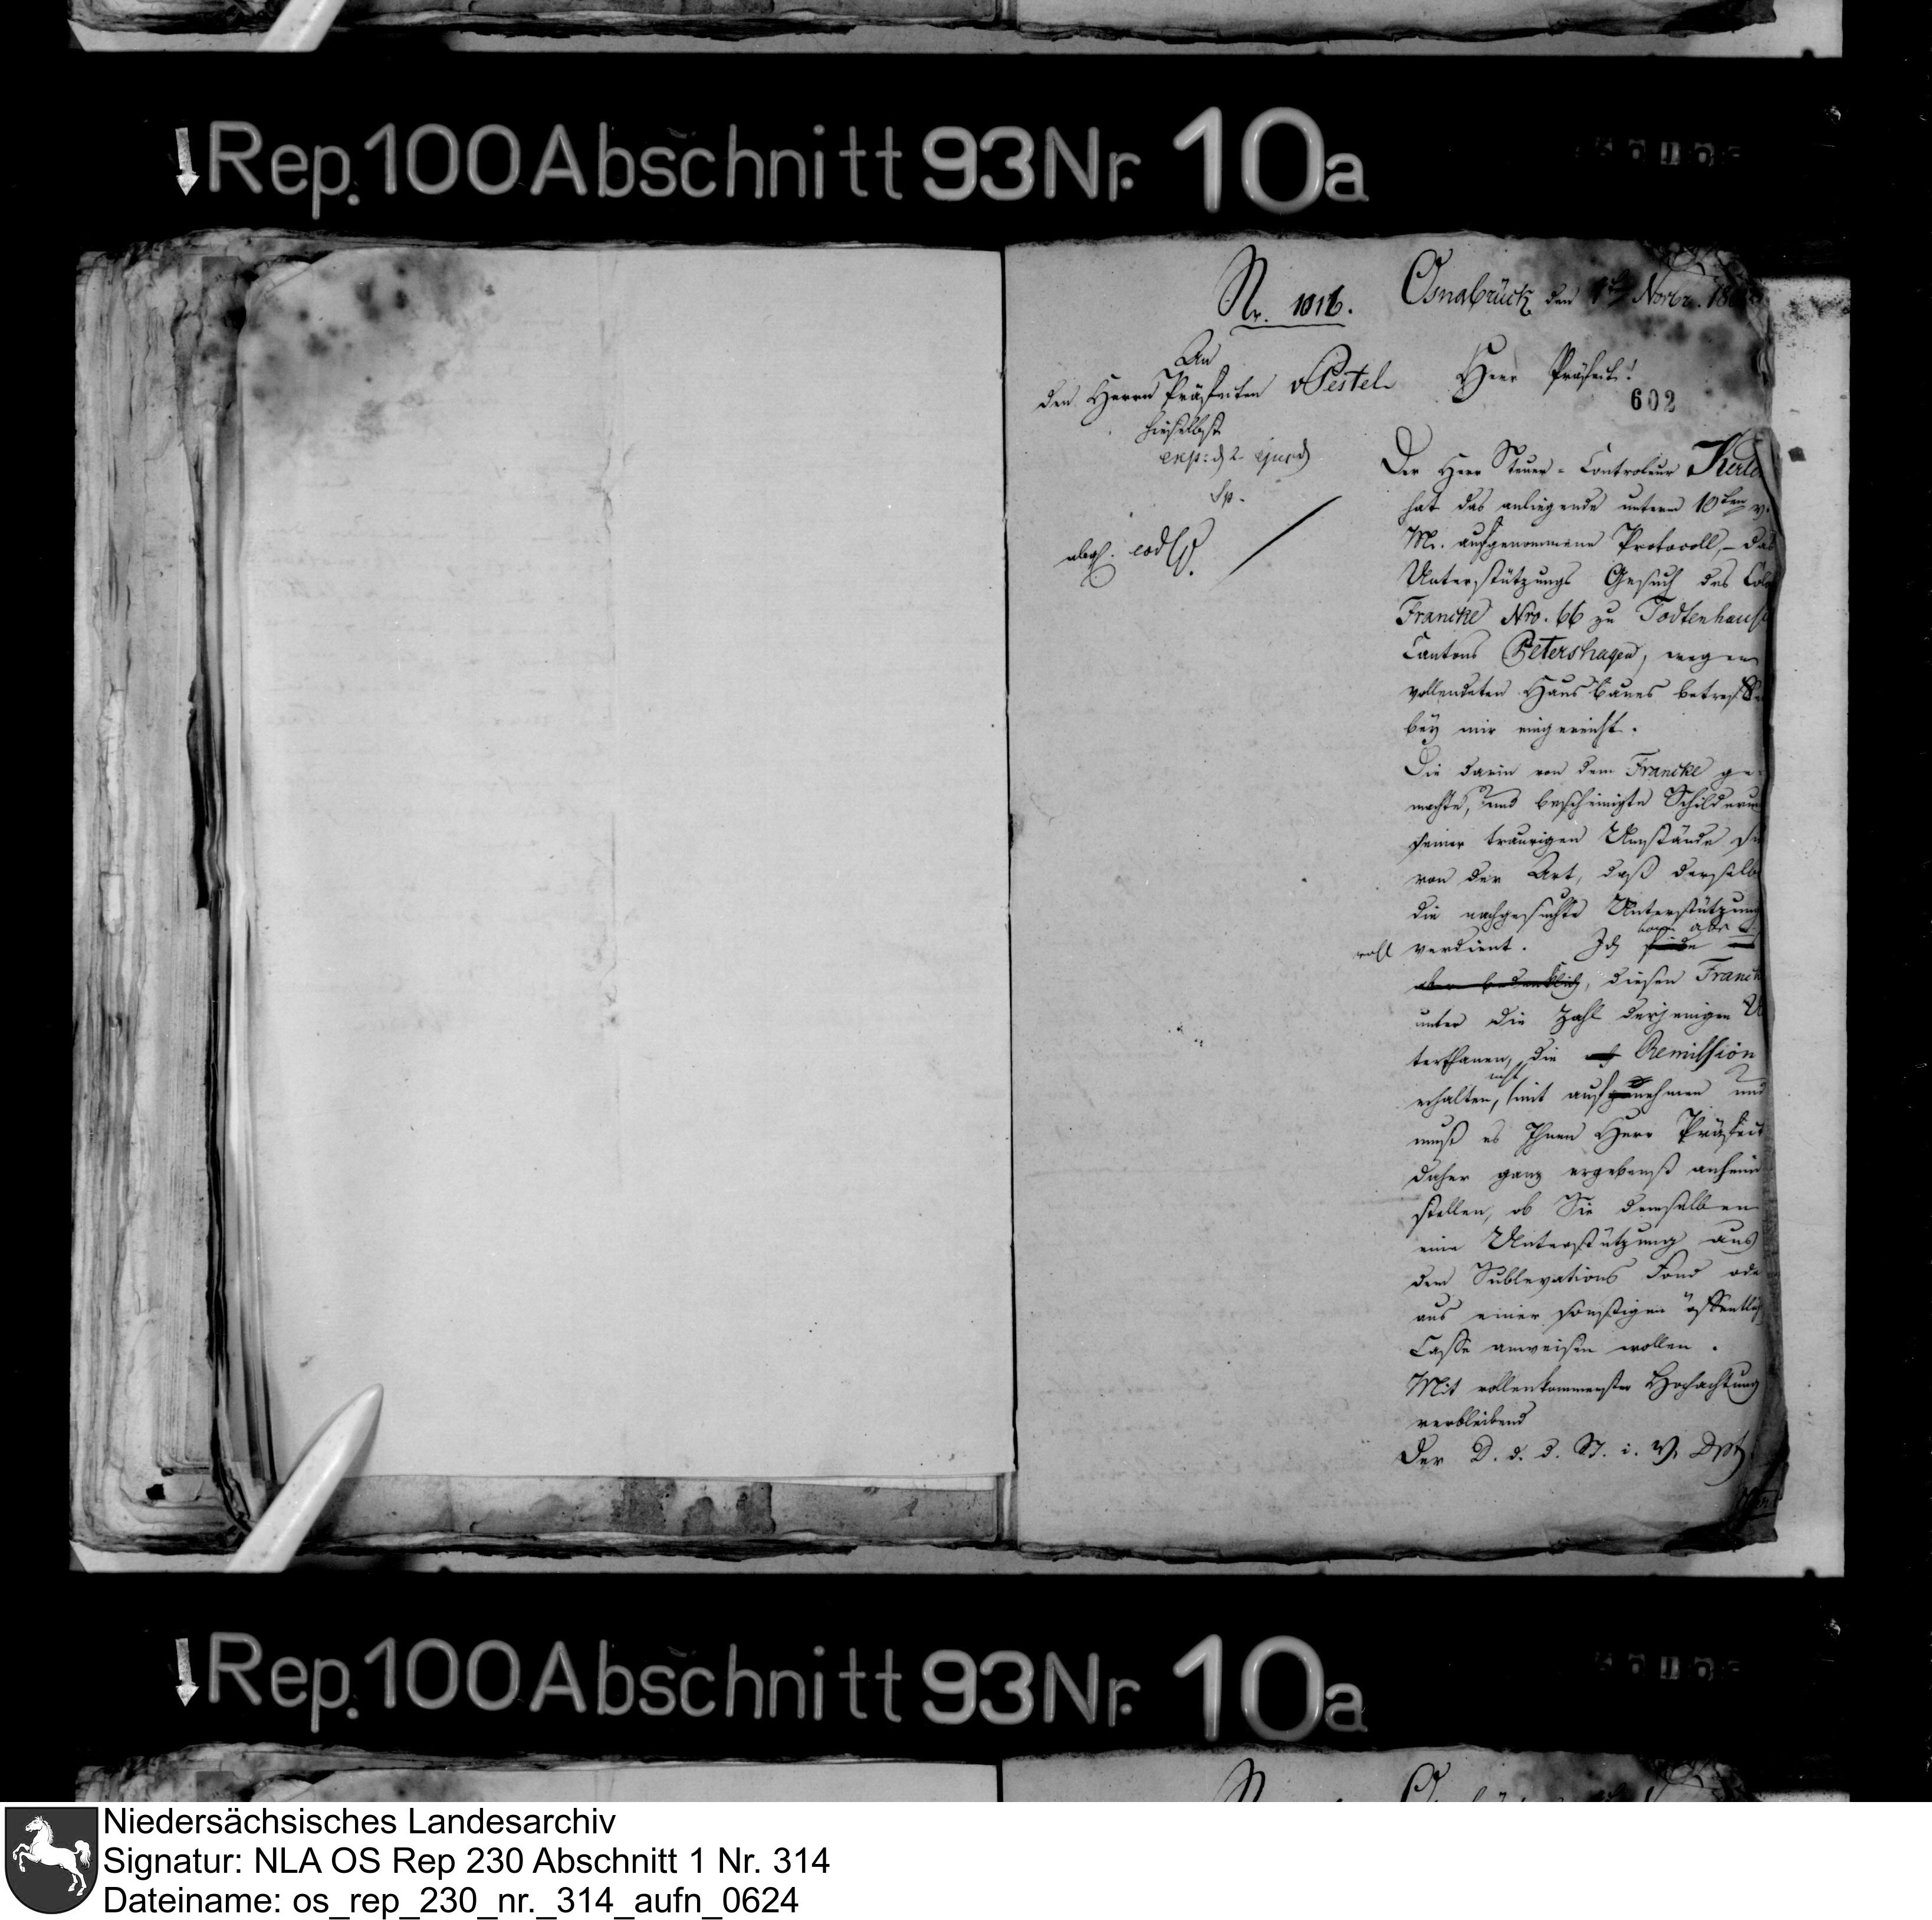 Rep. 100 Abschnitt 93 Nr. 10a
Nr. 1016.
Osnabrück den 1ten Novbr. 18
An
den Herrn Präfecten v Pestel
hieselbst
exp: d 2 ejusd
Sp.
abgs. eod
Herr Präfect!
602
Der Herr Steuer-Controleur
hat das anliegende unterm 10ten v.
Mr. aufgenommene Protocoll, - das
Unterstützungs Gesuch des Col
Francke Nro. 66 zu Todtenhaus
Cantons Petershagen, wegen
vollendeten Hausbaues betreffe
bey mir eingereicht.
Die darin von dem Francke ge-
machte, und bescheinigte Schilderun
seiner traurigen Umstände si
von der Art, daß derselbe
die nachgesuchte Unterstützung
wohl verdient. Ich finde kann aber
aber bedenklich, diesen Franck
unter die Zahl derjenigen U
terthanen, die Remission
erhalten, nicht mit aufzunehmen und
muß es Ihnen Herr Präfect
daher ganz ergebenst anheim
stellen, ob Sie demselben
eine Unterstützung aus
dem Sublevations Fond ode
aus einer sonstigen öffentlich
Casse anweisen wollen.
Mit vollenkommenster Hochachtung
verbleibend
Der D. d. d. St. i. W. Dpt.
Rep. 100 Abschnitt 93 Nr. 10a
Niedersächsisches Landesarchiv
Signatur: NLA OS Rep 230 Abschnitt 1 Nr. 314
Dateiname: os_rep_230_nr._314_aufn_0624